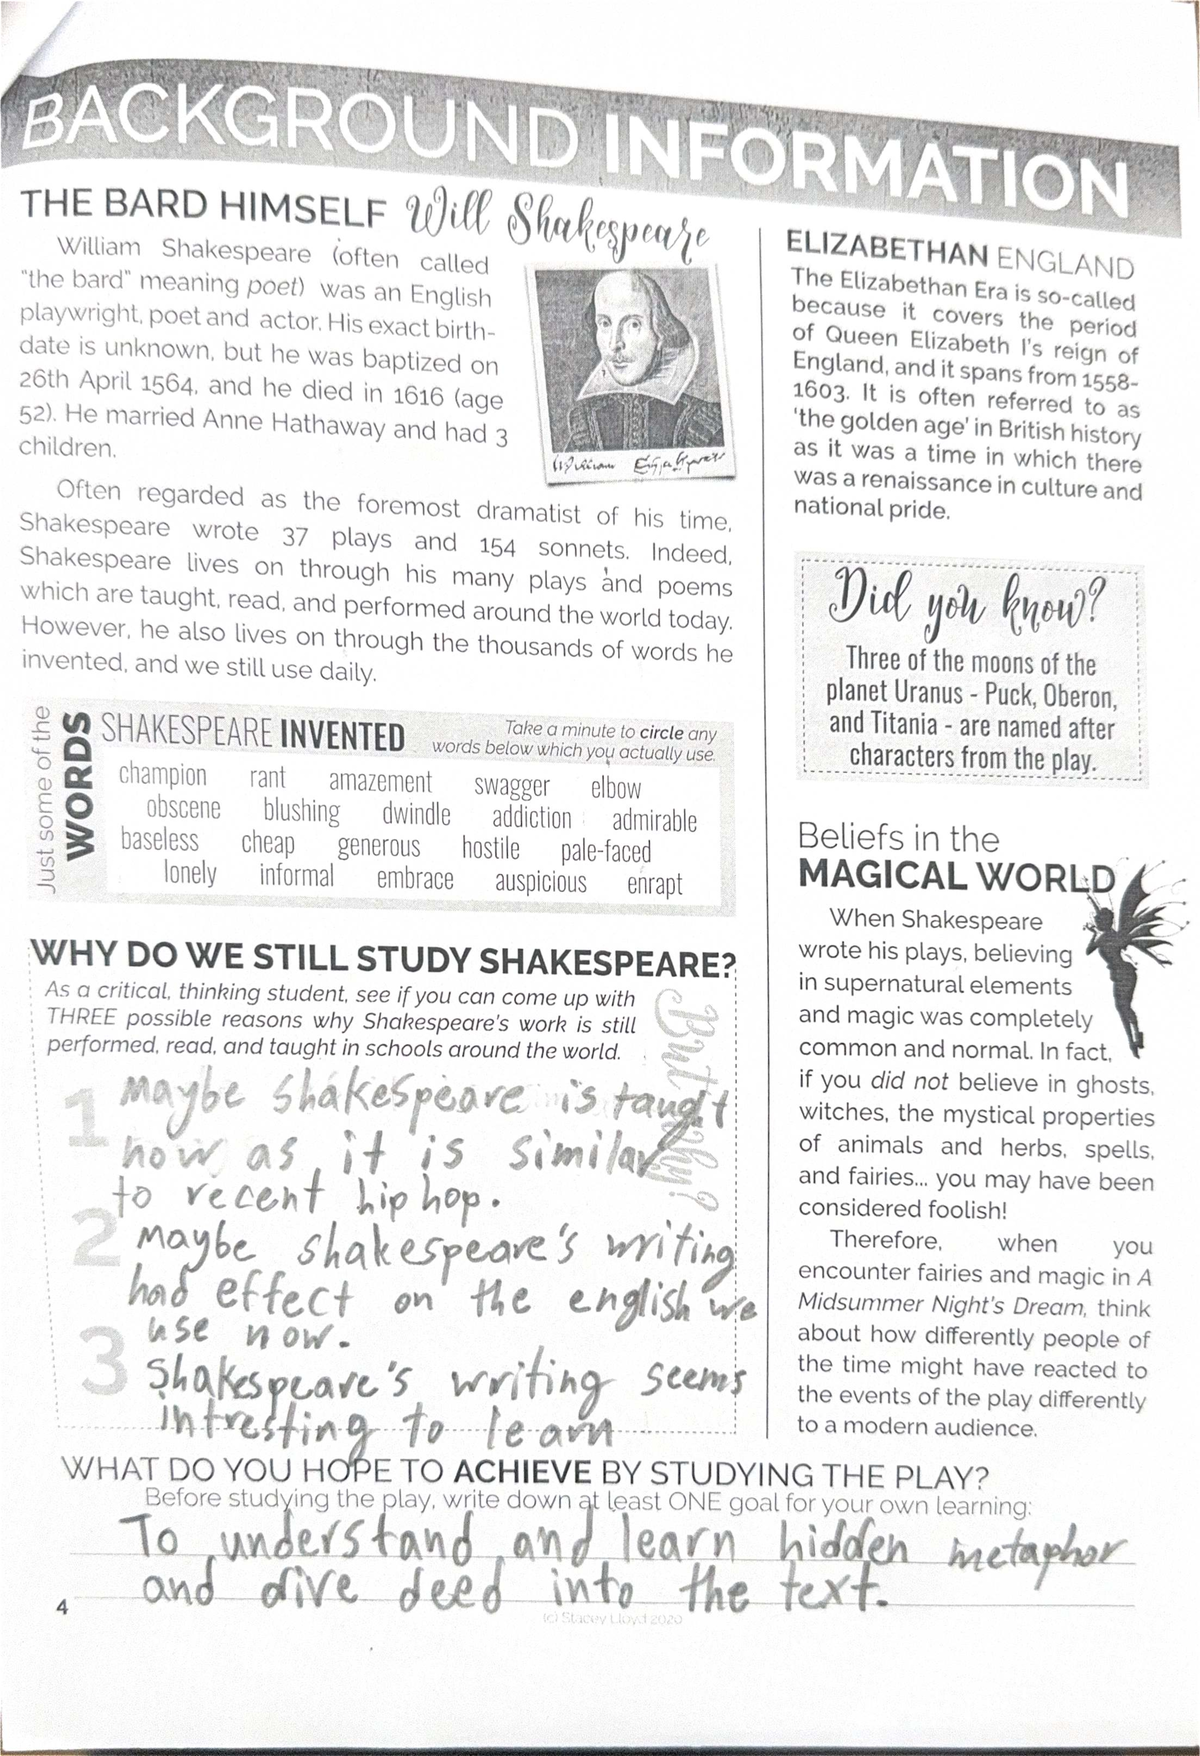 BACKGROUND INFORMATION
THE BARD HIMSELF Will Shakespeare
William Shakespeare (often called
"the bard" meaning poet) was an English
playwright, poet and actor. His exact birth-
date is unknown, but he was baptized on
26th April 1564, and he died in 1616 (age
52). He married Anne Hathaway and had 3
children.
Often regarded as the foremost dramatist of his time,
Shakespeare wrote 37 plays and 154 sonnets. Indeed,
Shakespeare lives on through his many plays and poems
which are taught, read, and performed around the world today.
However, he also lives on through the thousands of words he
invented, and we still use daily.
Just some of the
WORDS
SHAKESPEARE INVENTED
Take a minute to circle any
words below which you actually use.
champion rant amazement swagger elbow
obscene blushing dwindle addiction admirable
baseless cheap generous hostile pale-faced
lonely informal embrace auspicious enrapt
WHY DO WE STILL STUDY SHAKESPEARE?
As a critical, thinking student, see if you can come up with
THREE possible reasons why Shakespeare's work is still
performed, read, and taught in schools around the world.
But why?
1 Maybe shakespeare is taught
now as it is similar
to recent hip hop.
2 Maybe shakespeare's writing
had effect on the english we
use now.
3 Shakespeare's writing seems
intresting to learn
ELIZABETHAN ENGLAND
The Elizabethan Era is so-called
because it covers the period
of Queen Elizabeth I's reign of
England, and it spans from 1558-
1603. It is often referred to as
'the golden age' in British history
as it was a time in which there
was a renaissance in culture and
national pride.
Did you know?
Three of the moons of the
planet Uranus - Puck, Oberon,
and Titania - are named after
characters from the play.
Beliefs in the
MAGICAL WORLD
When Shakespeare
wrote his plays, believing
in supernatural elements
and magic was completely
common and normal. In fact,
if you did not believe in ghosts,
witches, the mystical properties
of animals and herbs, spells,
and fairies... you may have been
considered foolish!
Therefore, when you
encounter fairies and magic in A
Midsummer Night's Dream, think
about how differently people of
the time might have reacted to
the events of the play differently
to a modern audience.
WHAT DO YOU HOPE TO ACHIEVE BY STUDYING THE PLAY?
Before studying the play, write down at least ONE goal for your own learning:
To understand and learn hidden metaphor
and dive deed into the text.
4
(c) Stacey Lloyd 2020